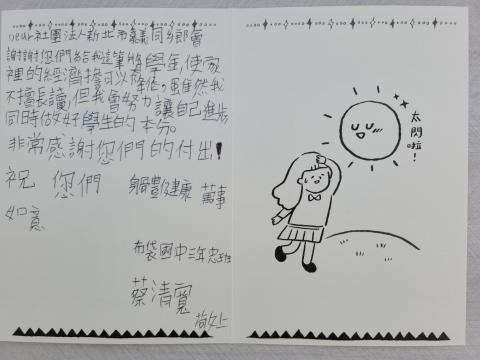 Dear社團法人新北市嘉義同鄉會
謝謝您們給我這筆獎學金,使家
裡的經濟擔可以降低,雖然我
不擅長讀,但我會努力讓自己進步
同時做好學生的本分。
非常感謝您們的付出!
祝 您們 身體健康 萬事
如意
布袋國中三年忠班
蔡清寬
敬上
太閃啦!